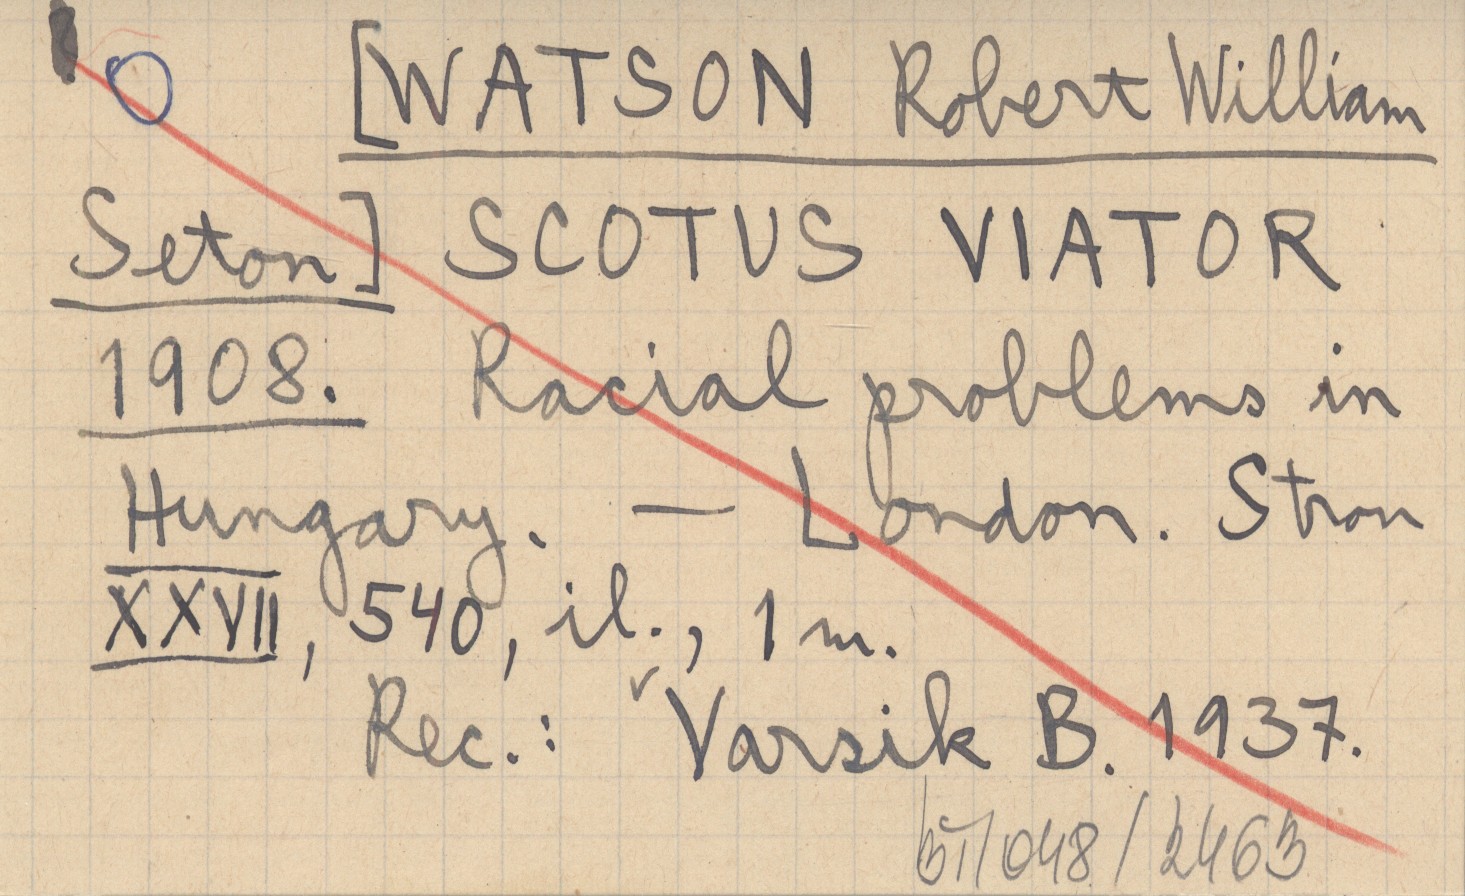 [WATSON Robert William
Seton] SCOTUS VIATOR
1908. Racial problems in
Hungary. — London. Stron
XXVII, 540, il., 1 m.
Rec.: Varsik B. 1937.
048/2463